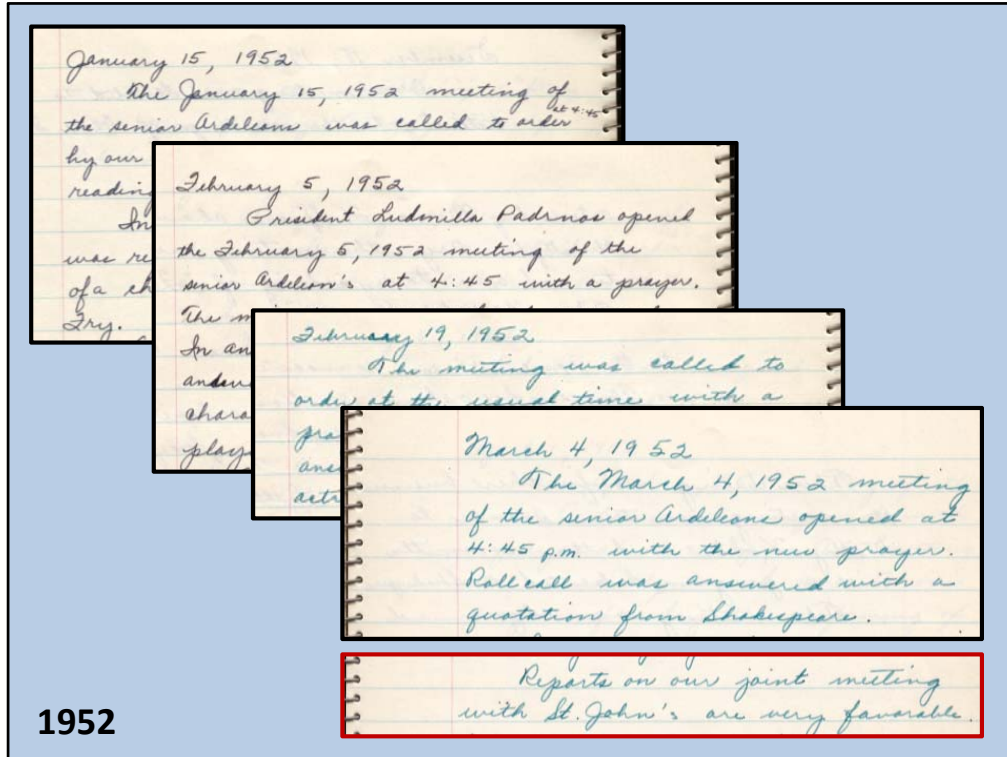 January 15, 1952
The January 15, 1952 meeting of
the senior Ardeleons was called to order at 4:45
by our
reading
In
was re
of a ch
Fry.
February 5, 1952
President Ludmilla Padrnos opened
the February 5, 1952 meeting of the
senior Ardeleon's at 4:45 with a prayer.
The m
In an
answ
chara
play
February 19, 1952
The meeting was called to
order at the usual time with a
pra
ans
actr
March 4, 1952
The March 4, 1952 meeting
of the senior Ardeleons opened at
4:45 p.m. with the new prayer.
Roll call was answered with a
quotation from Shakespeare.
Reports on our joint meeting
with St. John's are very favorable.
1952